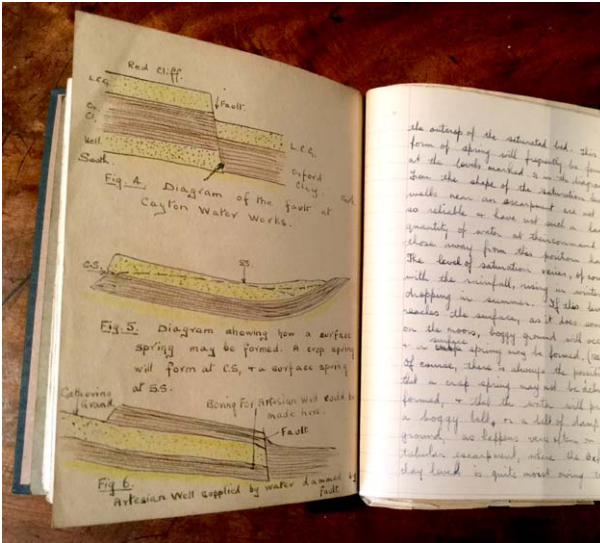 Red Cliff.
L.C.G.
Fault
Ox.
Cl.
Kell.
L.C.G.
South.
Oxford
Clay.
Fig. 4. Diagram of the fault at
Cayton Water Works.
C.S.
S.S.
Fig. 5. Diagram showing how a surface
spring may be formed. A crop spring
will form at C.S, & a surface spring
at S.S.
Catchment
Ground
Boring for Artesian Well could be
made here.
Fault
Fig 6.
Artesian Well supplied by water dammed by
fault
the outcrop of the saturated bed. This
form of spring will frequently be
at the levels marked S in the diagram
from the shape of the saturation
wells near an escarpment are not
so reliable & have not such a
quantity of water at their command
those away from this position
The level of saturation varies, of
with the rainfall, rising in winter
dropping in summer. If this
reaches the surface, as it does
on the moors, boggy ground will
surface
& a spring may be formed.
Of course, there is always the
that a crop spring may not be
formed, & that the water will
a boggy belt, or a belt of damp
ground, as happens very often in
tabular escarpment, where the
clay level is quite moist owing